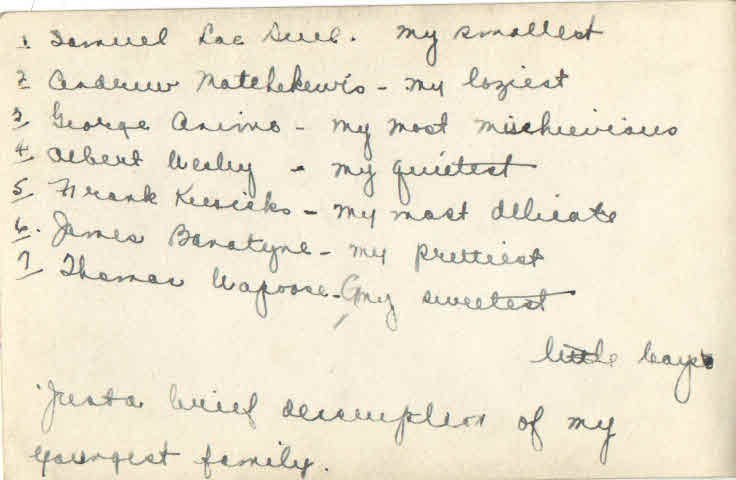 1 Samuel Lac Seul. My smallest
2 Andrew Matchekewis - my laziest
3 George Animo - my most mischievious
4 Albert Wesley - my quietest
5 Frank - my most delicate
6. James Banatyne - my prettiest
7 Thomas Wapoose - my sweetest
little boys
Just a brief description of my
youngest family.